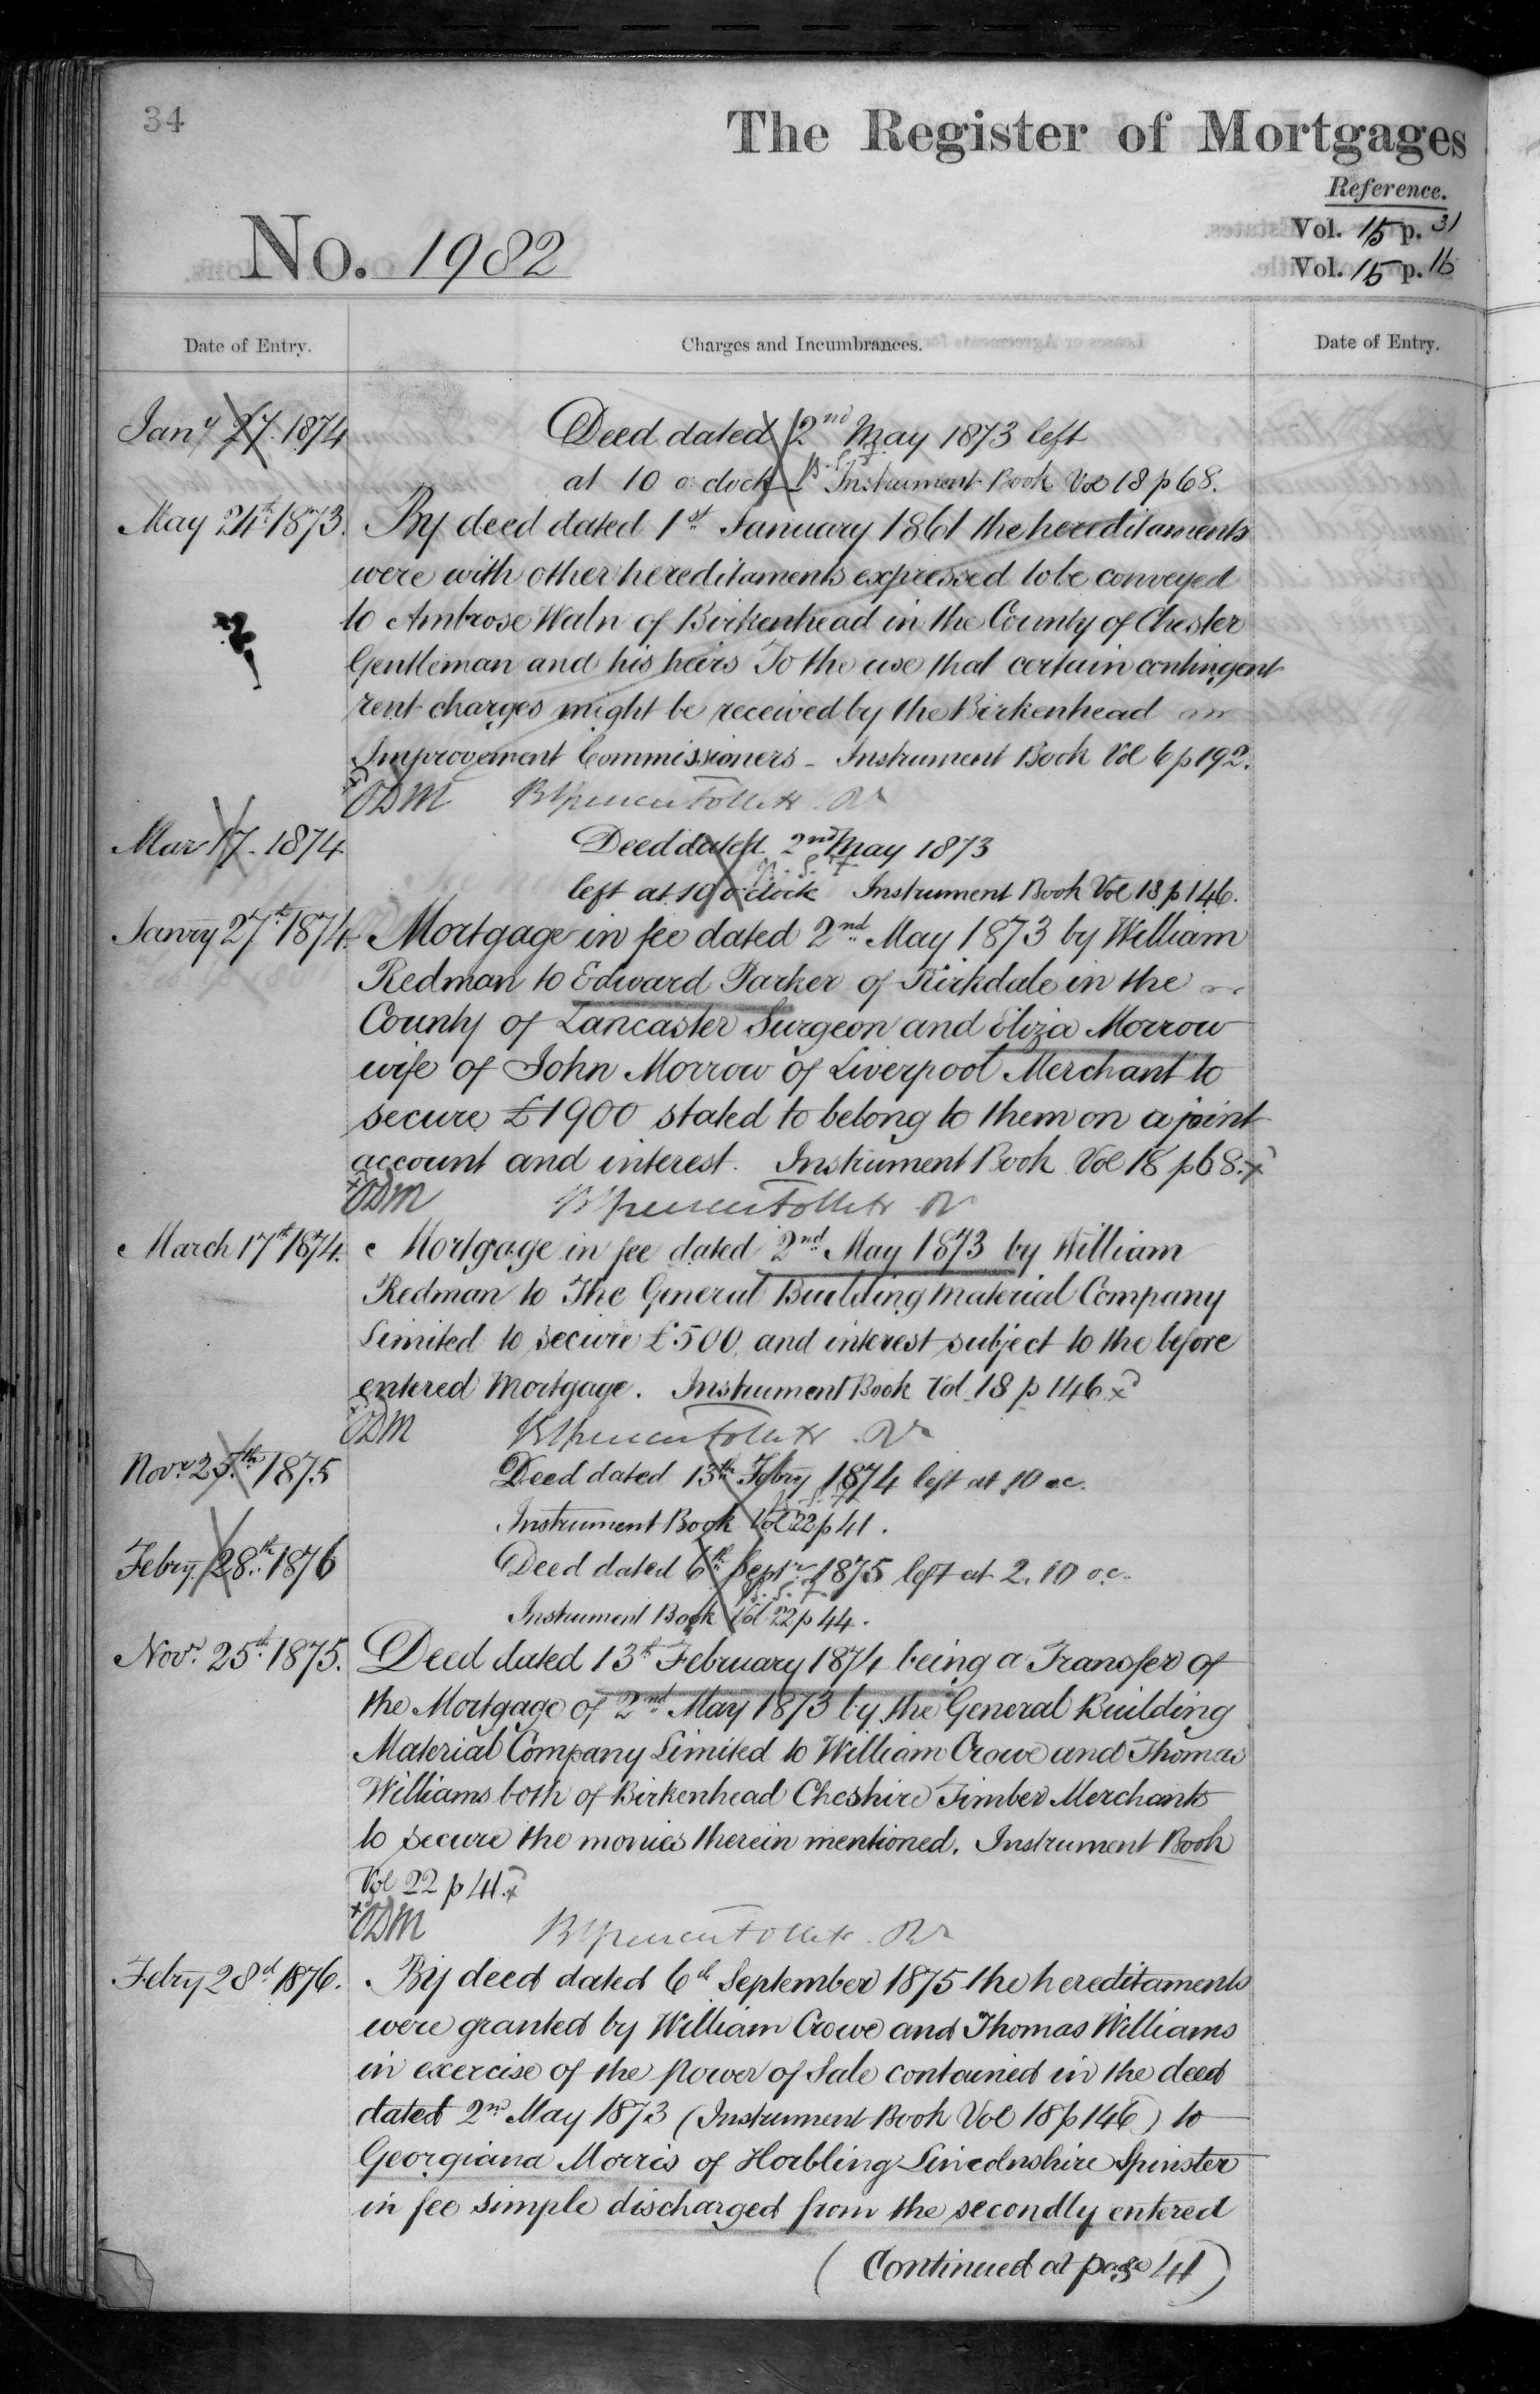 34
The Register of Mortgages
Reference.
No. 1982
Vol. 15 p. 31
Vol. 15 p. 16
Date of Entry.
Charges and Incumbrances.
Date of Entry.
Jany 27. 1874
Deed dated 2nd May 1873 left
at 10 o'clock Instrument Book Vol 18 p 68.
May 24th 1873.
By deed dated 1st January 1861 the hereditaments
were with other hereditaments expressed to be conveyed
to Ambrose Waln of Birkenhead in the County of Chester
Gentleman and his heirs To the use that certain contingent
rent charges might be received by the Birkenhead
Improvement Commissioners - Instrument Book Vol 6 p 192.
ODM
Mar 17. 1874
Deed dated 2nd May 1873
left at 10 o'clock Instrument Book Vol 18 p 146.
Janry 27th 1874.
Mortgage in fee dated 2nd May 1873 by William
Redman to Edward Parker of Kirkdale in the
County of Lancaster Surgeon and Eliza Morrow
wife of John Morrow of Liverpool Merchant to
secure £1900 stated to belong to them on a joint
account and interest. Instrument Book Vol 18 p 68.
ODM
March 17th 1874.
Mortgage in fee dated 2nd May 1873 by William
Redman to The General Building Material Company
Limited to secure £500 and interest subject to the before
entered Mortgage. Instrument Book Vol 18 p 146
ODM
Novr 25th 1875
Deed dated 13th Febry 1874 left at 10 oc.
Instrument Book Vol 22 p 41.
Febry 28th 1876
Deed dated 6th Septr 1875 left at 2.10 o.c.
Instrument Book Vol 22 p 44.
Novr 25th 1875.
Deed dated 13th February 1874 being a Transfer of
the Mortgage of 2nd May 1873 by the General Building
Material Company Limited to William Crowe and Thomas
Williams both of Birkenhead Cheshire Timber Merchants
to secure the monies therein mentioned. Instrument Book
Vol 22 p 41.
ODM
Febry 28d 1876.
By deed dated 6th September 1875 the hereditaments
were granted by William Crowe and Thomas Williams
in exercise of the power of Sale contained in the deed
dated 2nd May 1873 (Instrument Book Vol 18 p 146) to
Georgiana Morris of Horbling Lincolnshire Spinster
in fee simple discharged from the secondly entered
(Continued at page 41)